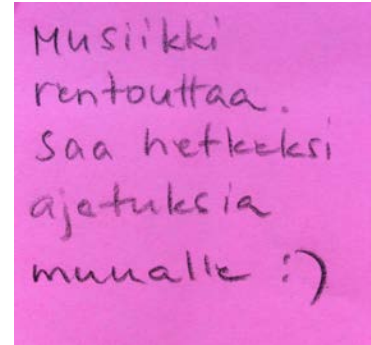 Musiikki
rentouttaa.
Saa hetkeksi
ajatuksia
muualle :)